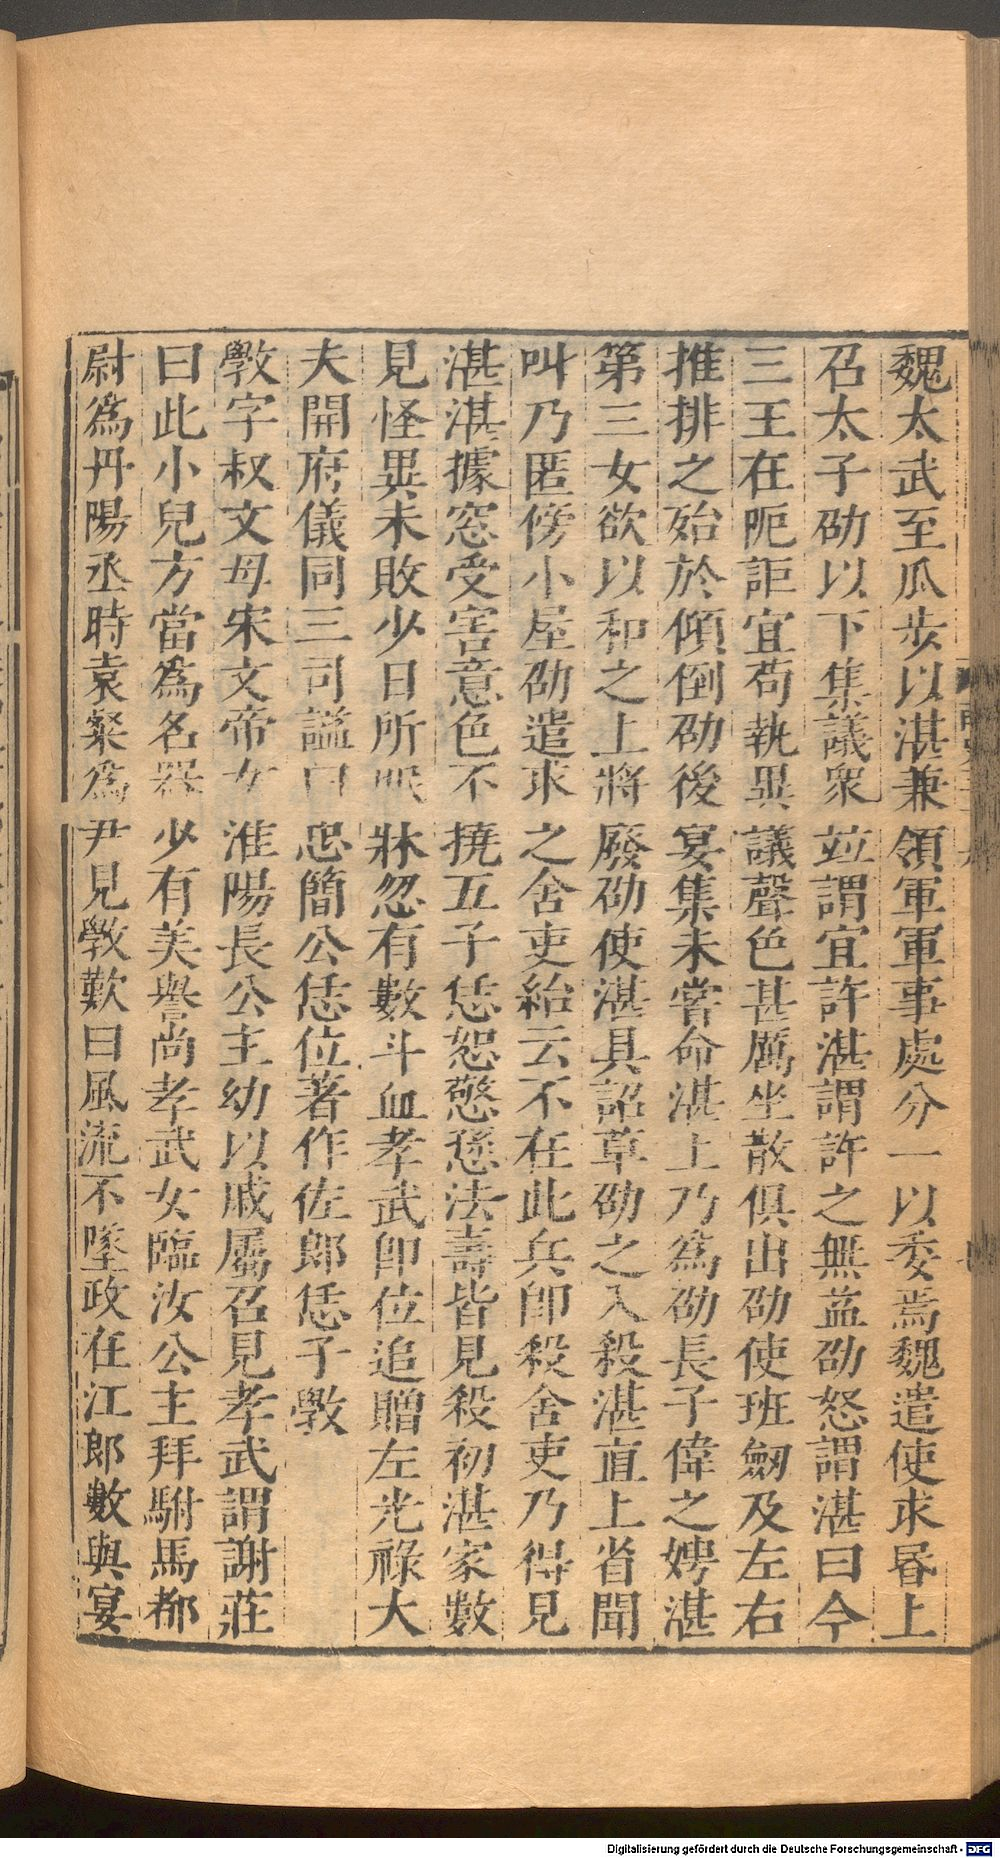 魏太武至瓜步以湛兼領軍軍事處分一以委焉魏遣使求昬上
召太子劭以下集議衆竝謂宜許湛謂許之無益劭怒謂湛曰今
三王在阨詎宜苟執異議聲色甚厲坐散俱出劭使班劒及左右
推排之殆於傾倒劭後宴集未嘗命湛上乃爲劭長子偉之娉湛
第三女欲以和之上將廢劭使湛具詔草劭之入殺湛直上省聞
叫乃匿傍小屋劭遣求之舍吏紿云不在此兵卽殺舍吏乃得見
湛湛據窓受害意色不撓五子恁恕憼愻法壽皆見殺初湛家數
見怪異未敗少日所眠牀忽有數斗血孝武卽位追贈左光祿大
夫開府儀同三司謚曰忠簡公恁位著作佐郎恁子斆
斆字叔文母宋文帝女淮陽長公主幼以戚屬召見孝武謂謝莊
曰此小兒方當爲名器少有美譽尚孝武女臨汝公主拜駙馬都
尉爲丹陽丞時袁粲爲尹見斆歎曰風流不墜政在江郎數與宴
Digitalisierung gefördert durch die Deutsche Forschungsgemeinschaft - DFG